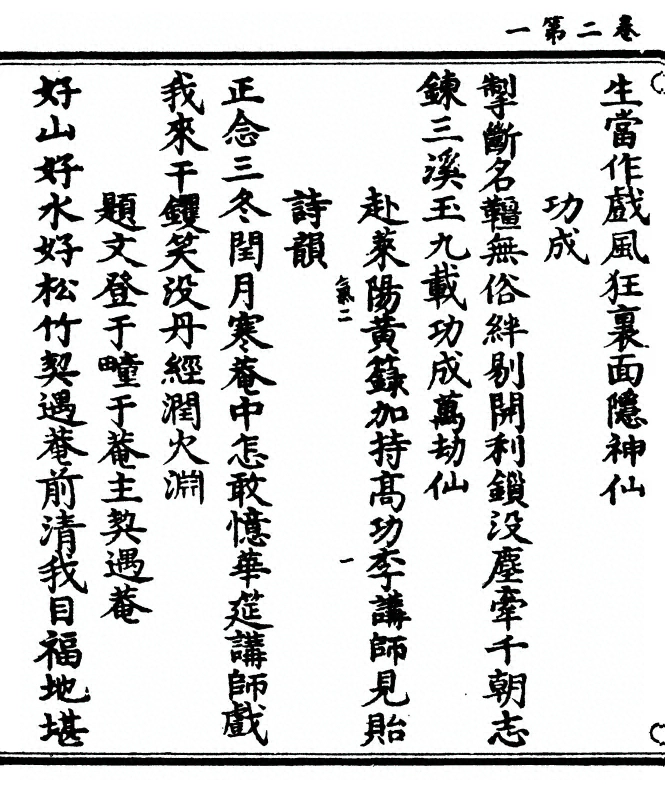 卷二第一
生當作戲風狂裏面隱神仙
功成
掣斷名韁無俗絆剔開利鎖没塵牽千朝志
鍊三溪玉九載功成萬劫仙
赴萊陽黄籙加持髙功李講師見貽
氣二
一
詩韻
正念三冬閏月寒菴中怎敢憶華筵講師戲
我來干鑊笑没丹經潤火淵
題文登于疃于菴主契遇菴
好山好水好松竹契遇菴前清我目福地堪